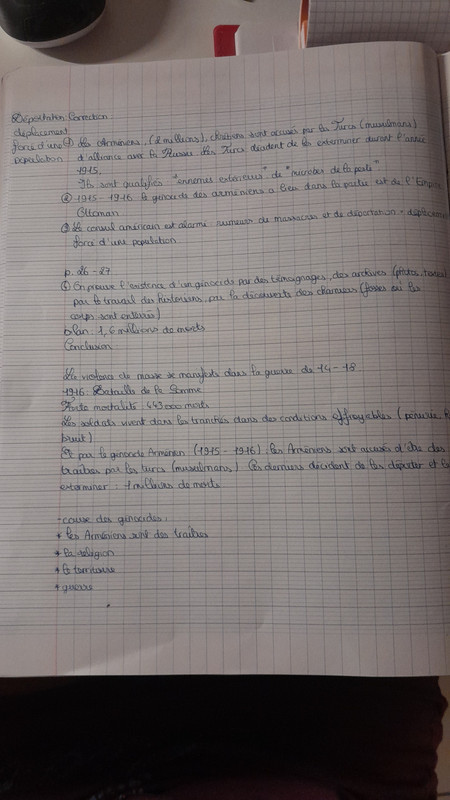 Déportation: Correction
déplacement
forcé d'une
population
① Les Arméniens, (2 millions), chrétiens sont accusés par les Turcs (musulmans)
d'alliance avec la Russie. Les Turcs décident de les exterminer durant l'année
1915.
Ils sont qualifiés "ennemis extérieurs" de "microbes de la peste"
② 1915-1916 le génocide des arméniens a lieu dans la partie est de l'Empire
Ottoman
③ Le consul américain est alarmé rumeurs de massacres et de déportation = déplacement
forcé d'une population
p. 26-27
⑥ On prouve l'existence d'un génocide par des témoignages, des archives (photos, textes)
par le travail des historiens, par la découverte des charniers (fosses où les
corps sont enterrés)
bilan 1,6 millions de morts
Conclusion
La violence de masse se manifeste dans la guerre de 14-18
1916: Bataille de la Somme
Forte mortalité: 443 000 morts
Les soldats vivent dans les tranchées dans des conditions effroyables (pénurie,
bruit)
Et par le génocide Arménien (1915-1916), les Arméniens sont accusés d'être des
traîtres par les turcs (musulmans) Ces derniers décident de les déporter et
exterminer : 1 millions de morts
- cause des génocides:
* les Arméniens sont des traîtres
* la religion
* le territoire
* guerre